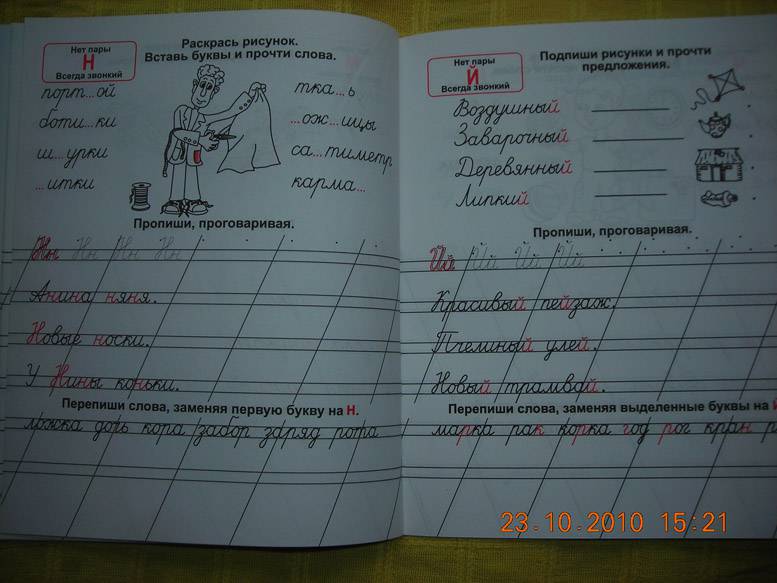 Нет пары
Н
Всегда звонкий
Раскрась рисунок.
Вставь буквы и прочти слова.
порт...ой
боти...ки
ш...урки
...итки
тка...ь
...ож...ицы
са...тиметр
карма...
Пропиши, проговаривая.
Нн Нн Нн Нн
Анина няня.
Новые носки.
У Нины коньки.
Перепиши слова, заменяя первую букву на Н.
ложка дочь кора забор заряд рота
Нет пары
Й
Всегда звонкий
Подпиши рисунки и прочти
предложения.
Воздушный
Заварочный
Деревянный
Липкий
Пропиши, проговаривая.
Йй Йй Йй Йй
Красивый пейзаж.
Пчелиный улей.
Новый трамвай.
Перепиши слова, заменяя выделенные буквы на Й
марка рак корка год рог кран
23.10.2010 15:21